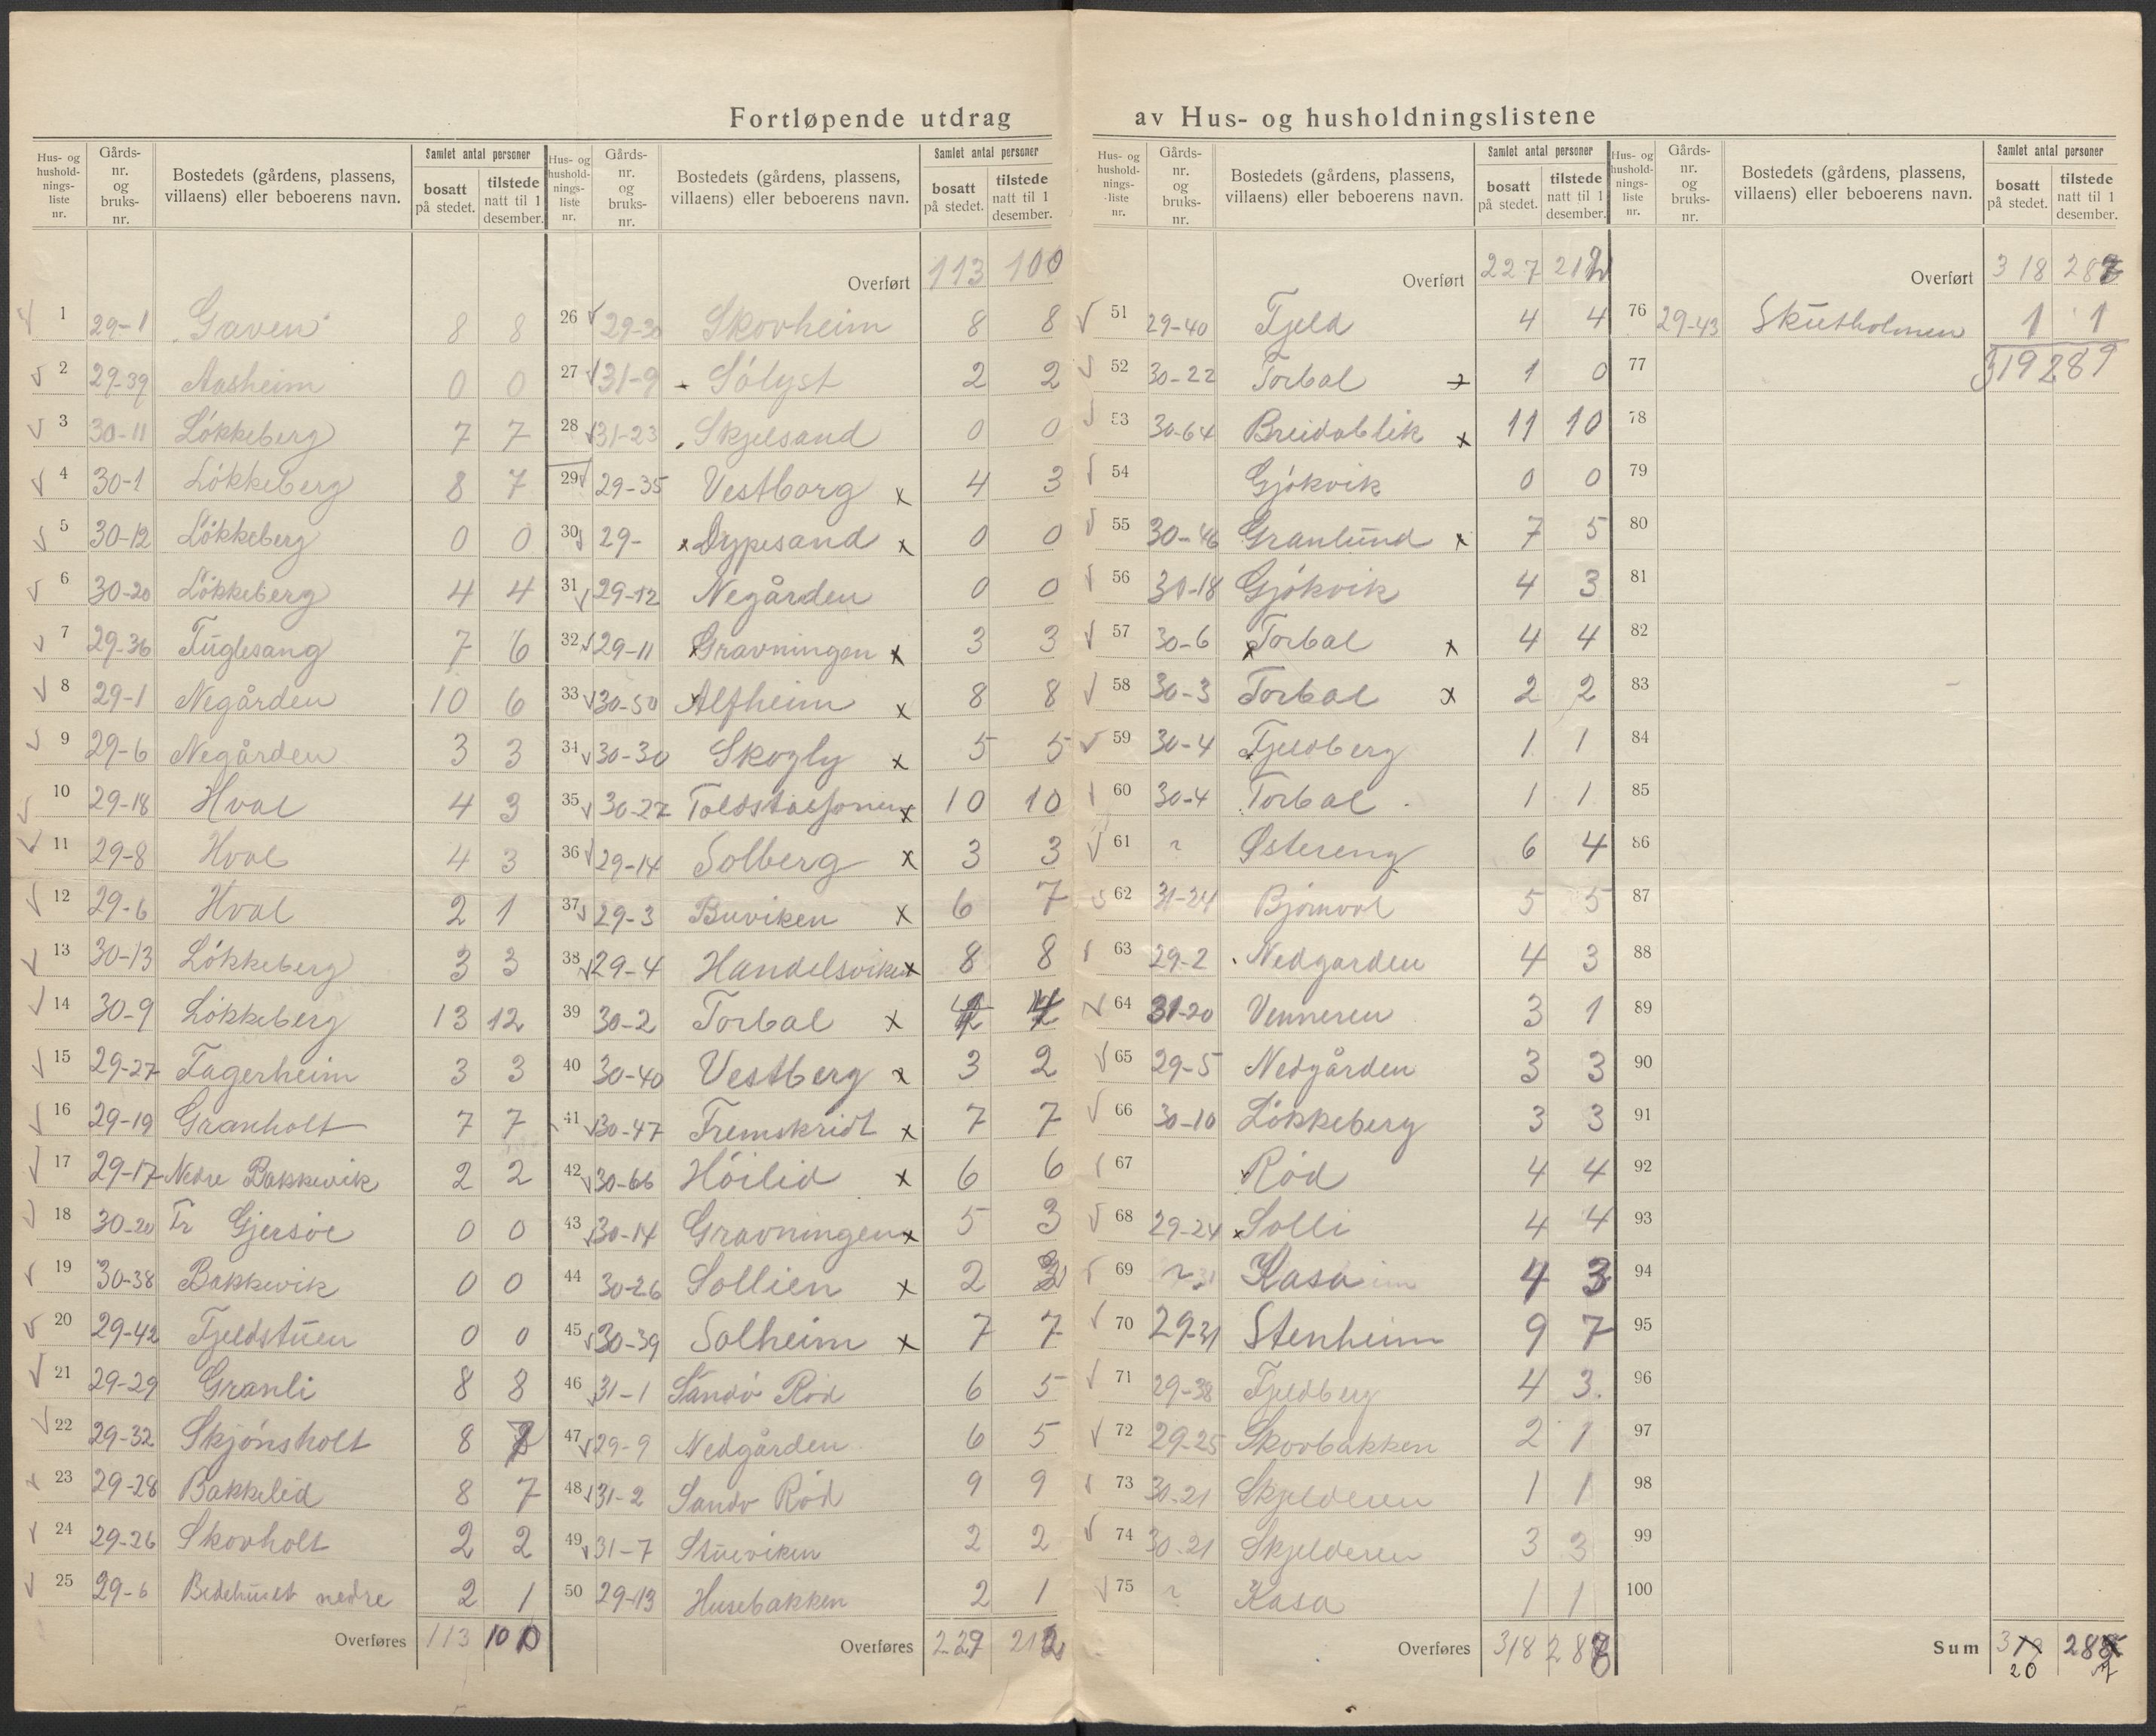 Fortløpende utdrag av Hus- og husholdningslistene
Hus- og hushold-nings-liste nr. | Gårds-nr. og bruks-nr. | Bostedets (gårdens, plassens, villaens) eller beboerens navn. | Samlet antal personer | bosatt på stedet. | tilstede natt til 1 desember.
1 29-1 Gaven 8 8
2 29-39 Aasheim 0 0
3 30-11 Løkkeberg 7 7
4 30-1 Løkkeberg 8 7
5 30-12 Løkkeberg 0 0
6 30-20 Løkkeberg 4 4
7 29-36 Fuglesang 7 6
8 29-1 Negården 10 6
9 29-6 Negården 3 3
10 29-18 Hval 4 3
11 29-8 Hval 4 3
12 29-6 Hval 2 1
13 30-13 Løkkeberg 3 3
14 30-9 Løkkeberg 13 12
15 29-27 Fagerheim 3 3
16 29-19 Granholt 7 7
17 29-17 Nedre Bakkevik 2 2
18 30-20 Fr Gjersøe 0 0
19 30-38 Bakkevik 0 0
20 29-42 Fjeldstuen 0 0
21 29-29 Granli 8 8
22 29-32 Skjønsholt 8
23 29-28 Bakkelid 8 7
24 29-26 Skovholt 2 2
25 29-6 Bedehuset nedre 2 1
Overføres 113 100
Hus- og hushold-nings-liste nr. | Gårds-nr. og bruks-nr. | Bostedets (gårdens, plassens, villaens) eller beboerens navn. | Samlet antal personer | bosatt på stedet. | tilstede natt til 1 desember.
Overført 113 100
26 29-30 Skovheim 8 8
27 31-9 Sólyst 2 2
28 31-23 Skjelsand 0 0
29 29-35 Vestborg x 4 3
30 29- x Dypesand x 0 0
31 29-12 Negården 0 0
32 29-11 x Gravningen x 3 3
33 30-50 x Alfheim x 8 8
34 30-30 Skogly x 5 5
35 30-27 Toldstasjonen x 10 10
36 29-14 Solberg x 3 3
37 29-3 Buviken x 6 7
38 29-4 Handelsviken x 8 8
39 30-2 Torbal x 4 4
40 30-40 Vestberg x 3 2
41 30-47 Fremskridt x 7 7
42 30-66 Höilid x 6 6
43 30-14 Gravningen x 5 3
44 30-26 Sollien x 2
45 30-39 Solheim x 7 7
46 31-1 Sandö Röd 6 5
47 29-9 Nedgården 6 5
48 31-2 Sandö Röd 9 9
49 31-7 Stueviken 2 2
50 29-13 Husebakken 2 1
Overføres 227 212
Hus- og hushold-nings-liste nr. | Gårds-nr. og bruks-nr. | Bostedets (gårdens, plassens, villaens) eller beboerens navn. | Samlet antal personer | bosatt på stedet. | tilstede natt til 1 desember.
Overført 227 212
51 29-40 Fjeld 4 4
52 30-22 Torbal x 1 0
53 30-64 Breidablik x 11 10
54 Gjökvik 0 0
55 30-46 Granlund x 7 5
56 30-18 Gjökvik 4 3
57 30-6 x Torbal x 4 4
58 30-3 Torbal x 2 2
59 30-4 Fjeldberg 1 1
60 30-4 Torbal 1 1
61 ? Østereng 6 4
62 31-24 Björnvol 5 5
63 29-2 Nedgarden 4 3
64 31-20 Venneren 3 1
65 29-5 Nedgården 3 3
66 30-10 Løkkeberg 3 3
67 Röd 4 4
68 29-24 x Solli 4 4
69 Kasa 4 3
70 29-31 Stenheim 9 7
71 29-38 Fjeldberg 4 3
72 29-25 Skovbakken 2 1
73 30-21 Skjelderen 1 1
74 30-21 Skjelderen 3 3
75 ? Kasa 1 1
Overføres 318
Hus- og hushold-nings-liste nr. | Gårds-nr. og bruks-nr. | Bostedets (gårdens, plassens, villaens) eller beboerens navn. | Samlet antal personer | bosatt på stedet. | tilstede natt til 1 desember.
Overført 318
76 29-43 Skutholmen 1 1
77 319 289
78
79
80
81
82
83
84
85
86
87
88
89
90
91
92
93
94
95
96
97
98
99
100
Sum
20